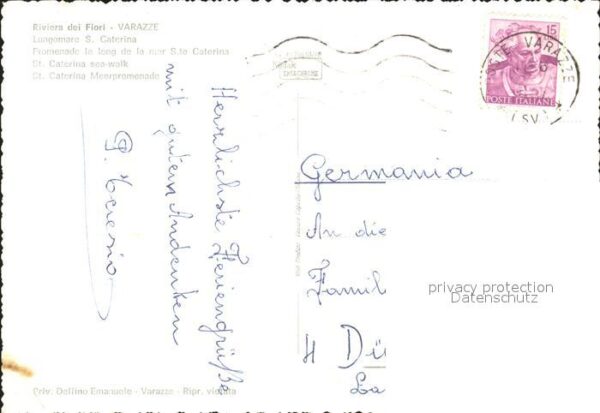 Riviera dei Fiori - VARAZZE
Lungomare S. Caterina
Promenade le long de la mer S.te Caterina
St. Caterina sea-walk
St. Caterina Meerpromenade
15
POSTE ITALIANE
VARAZZE
(SV)
Herrlichste Feriengrüße
mit gutem Andenken
P.
Germania
An die
Famil
H Dü
La
privacy protection
Datenschutz
Priv. Delfino Emanuele - Varazze - Ripr. vietata